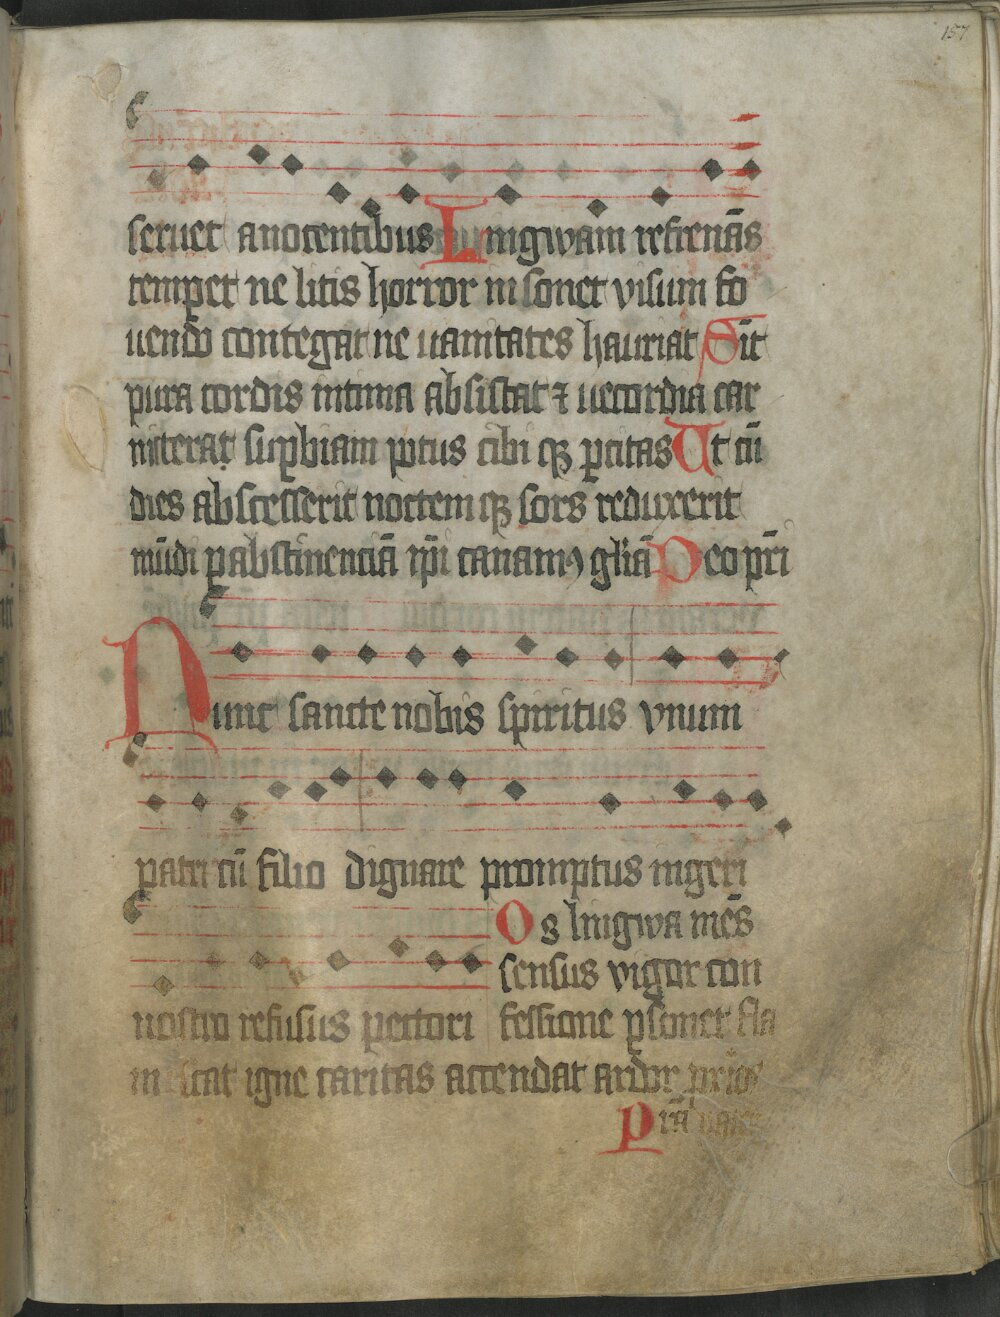 157
seruet a nocentibus Lingwam refrenās
temperet ne litis horror insonet visum fo
uendo contegat ne uanitates hauriat Sīt
pura cordis intima absistat ⁊ uecordia car
nis terat suꝑbiam potus cibi qꝫ ꝑcitas Ut cū
dies abscesserit noctem qꝫ sors reduxerit
mūdi ꝑ abstinenciā ip̄i canamꝰ gl̄iā Deo pr̄i
Nunc sancte nobis spiritus vnum
patri cū filio dignare promptus ingeri
Os lingwa mēs
sensus vigor con
nostro refusus pectori fessione ꝑsonet fla
mescat igne caritas accendat ardor
Prā